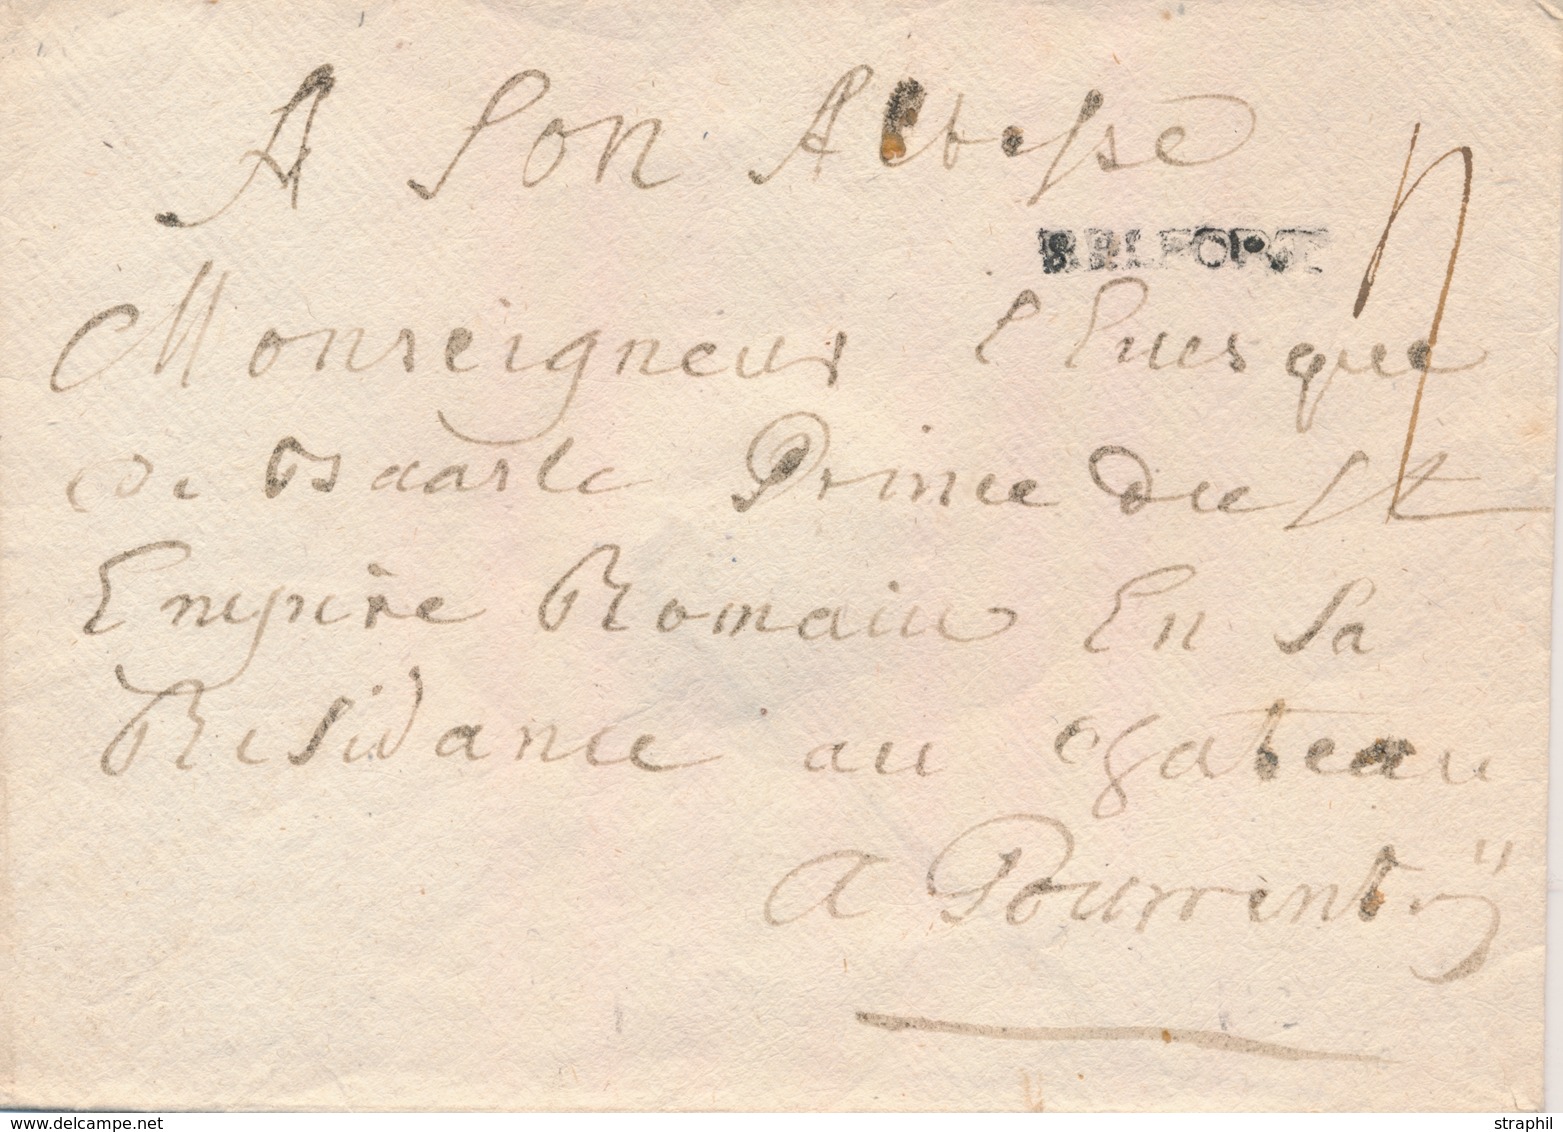 A Son Altesse
BELFORT
Monseigneur l Euesque
de Baasle Prince du St
Empire Romain En Sa
Residance au Chateau
a Pourrentrÿ
www.delcampe.net
straphil